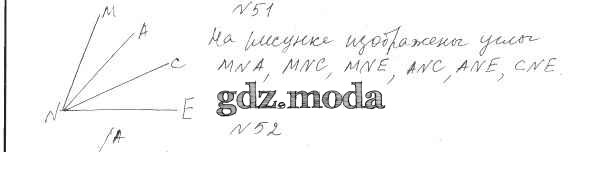 N51
M
A
C
N
E
На рисунке изображены углы
MNA, MNC, MNE, ANC, ANE, CNE.
gdz.moda
A
N52